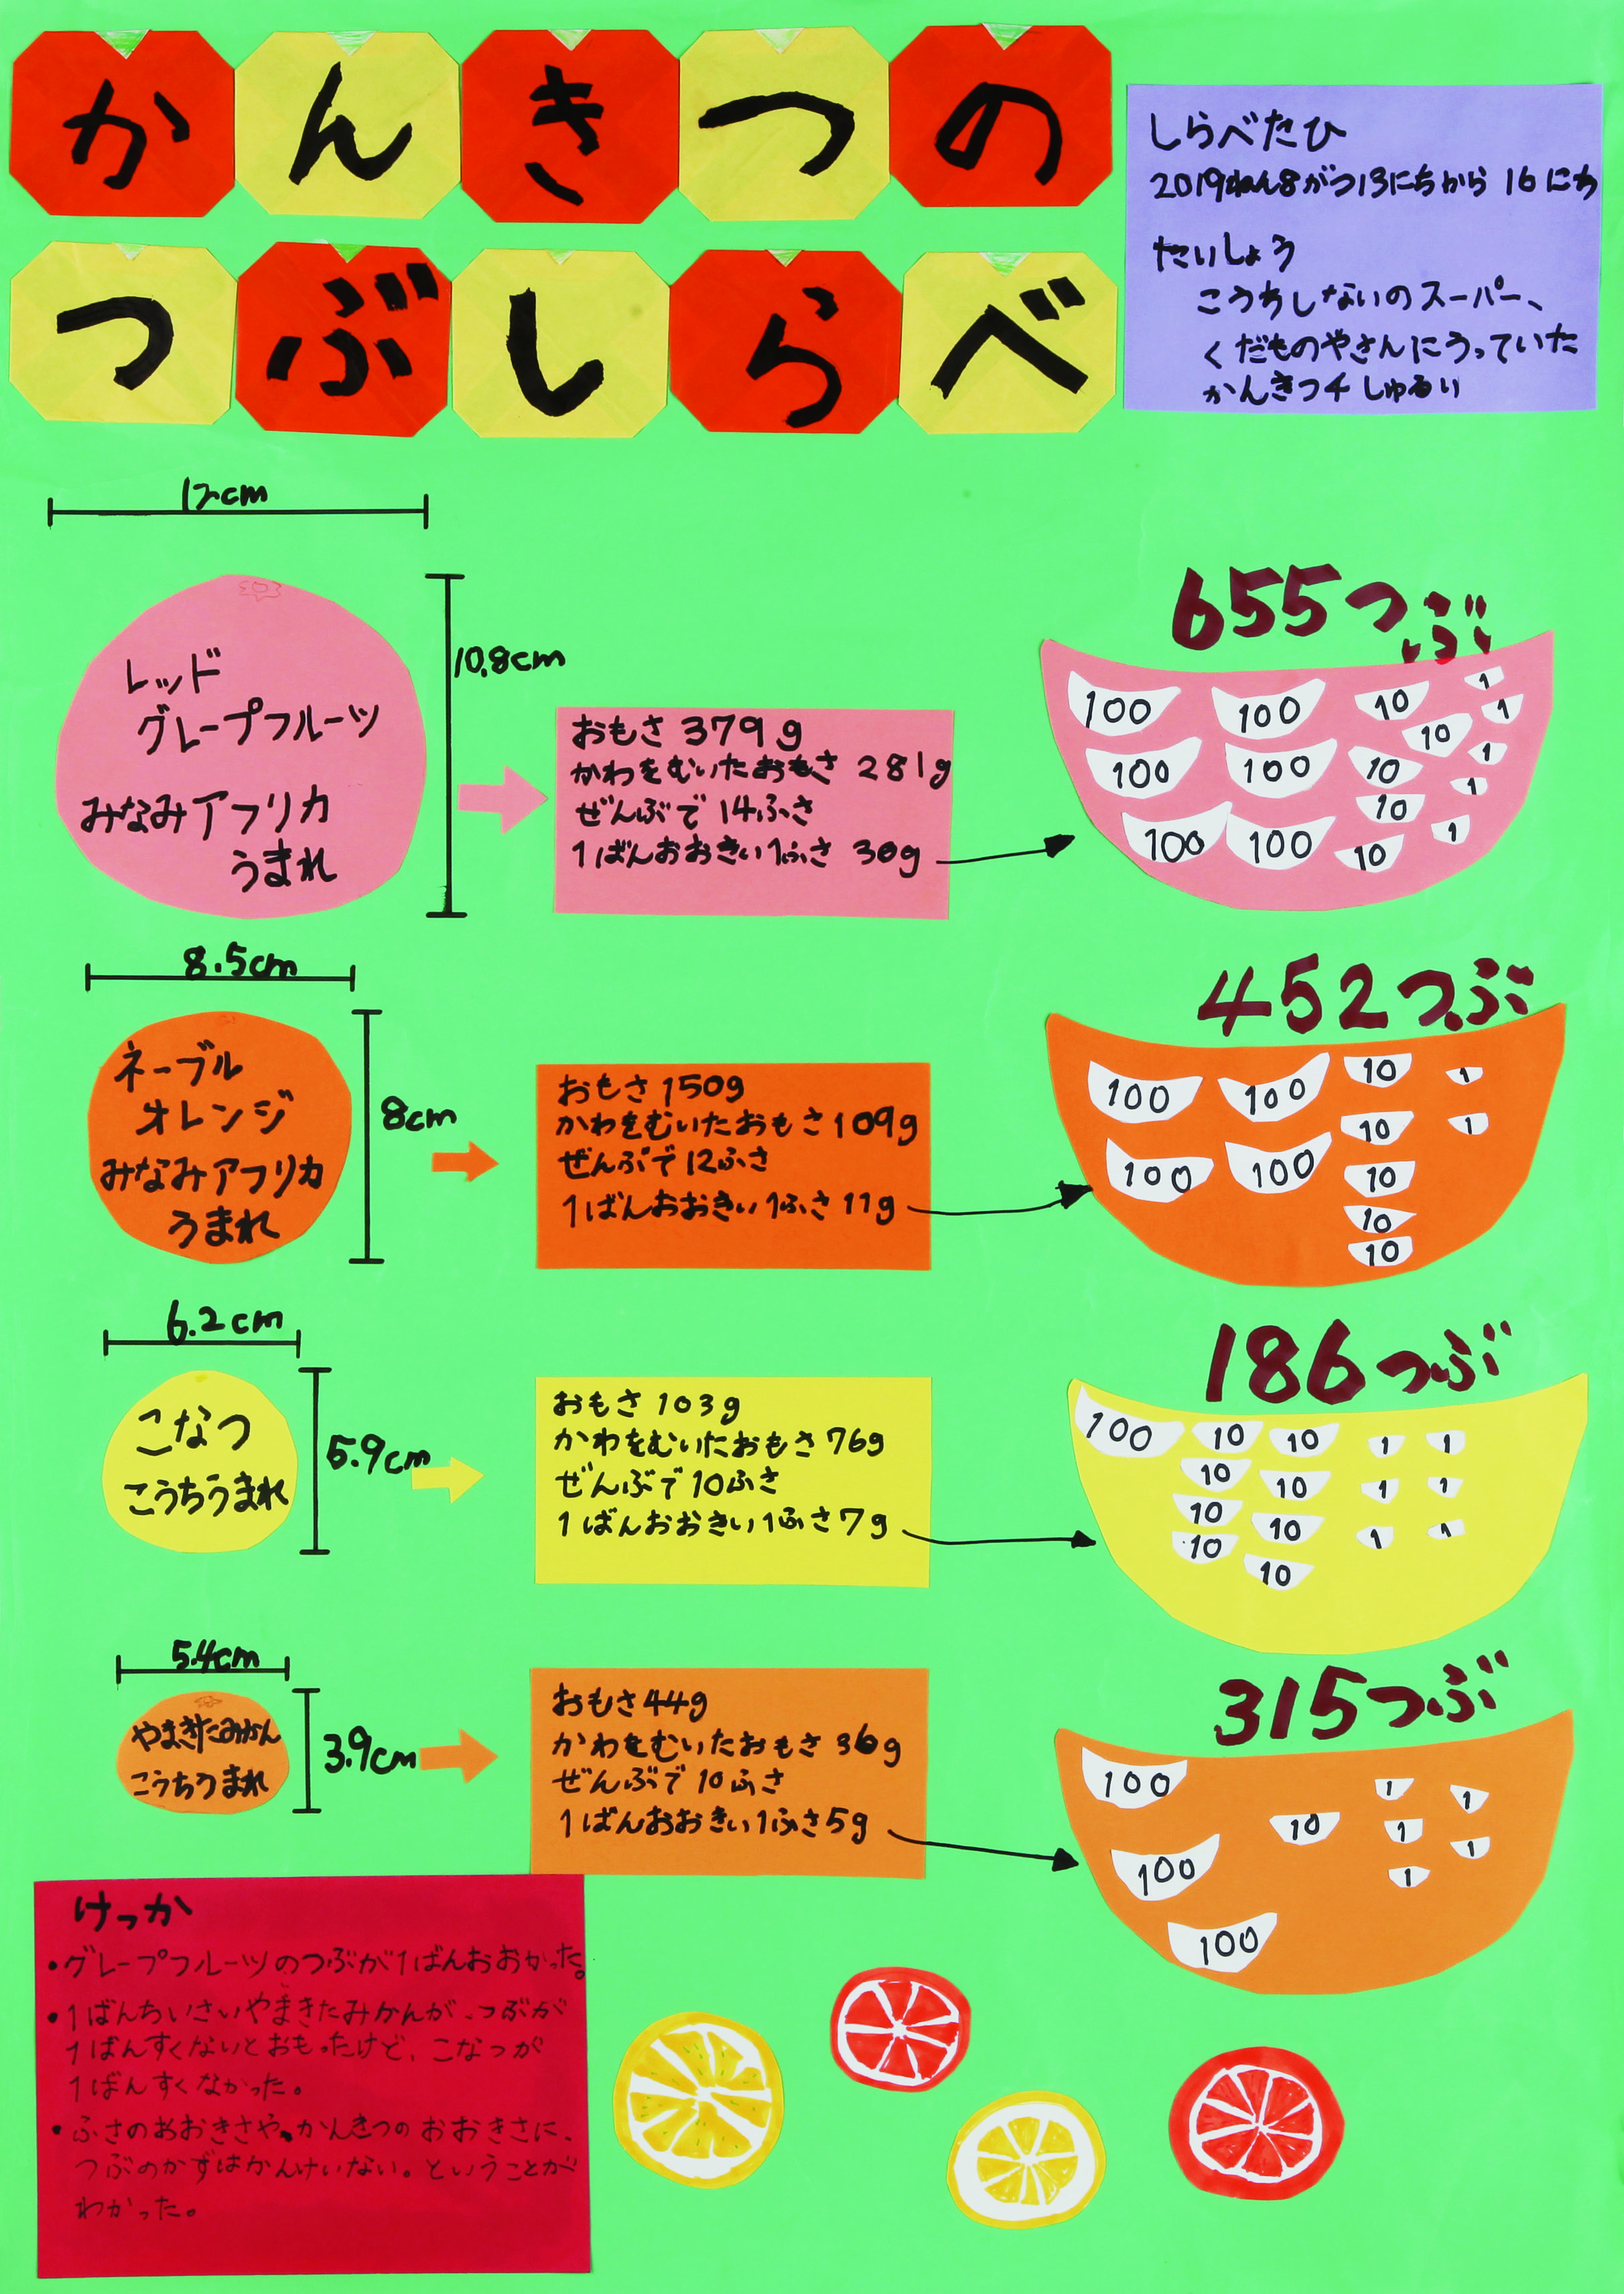 かんきつの
つぶしらべ
しらべたひ
2019ねん8がつ13にちから16にち
たいしょう
こうちしないのスーパー、
くだものやさんにうっていた
かんきつ4しゅるい
12cm
10.8cm
レッド
グレープフルーツ
みなみアフリカ
うまれ
おもさ 379g
かわをむいたおもさ 281g
ぜんぶで 14ふさ
1ばんおおきい1ふさ 30g
655つぶ
100 100 10 1
10 1
100 100 10 1
10 1
100 100 10 1
8.5cm
8cm
ネーブル
オレンジ
みなみアフリカ
うまれ
おもさ 150g
かわをむいたおもさ 109g
ぜんぶで 12ふさ
1ばんおおきい1ふさ 11g
452つぶ
100 100 10 1
10 1
100 100 10
10
10
6.2cm
5.9cm
こなつ
こうちうまれ
おもさ 103g
かわをむいたおもさ 76g
ぜんぶで 10ふさ
1ばんおおきい1ふさ 7g
186つぶ
100 10 10 1 1
10 10 1 1
10 10 1 1
10 10
5.4cm
3.9cm
やまきたみかん
こうちうまれ
おもさ 44g
かわをむいたおもさ 36g
ぜんぶで 10ふさ
1ばんおおきい1ふさ 5g
315つぶ
100 1 1
10 1 1
100 1
100
けっか
・グレープフルーツのつぶが1ばんおおかった。
・1ばんちいさいやまきたみかんが、つぶが
1ばんすくないとおもったけど、こなつが
1ばんすくなかった。
・ふさのおおきさや、かんきつのおおきさに、
つぶのかずはかんけいない。ということが
わかった。